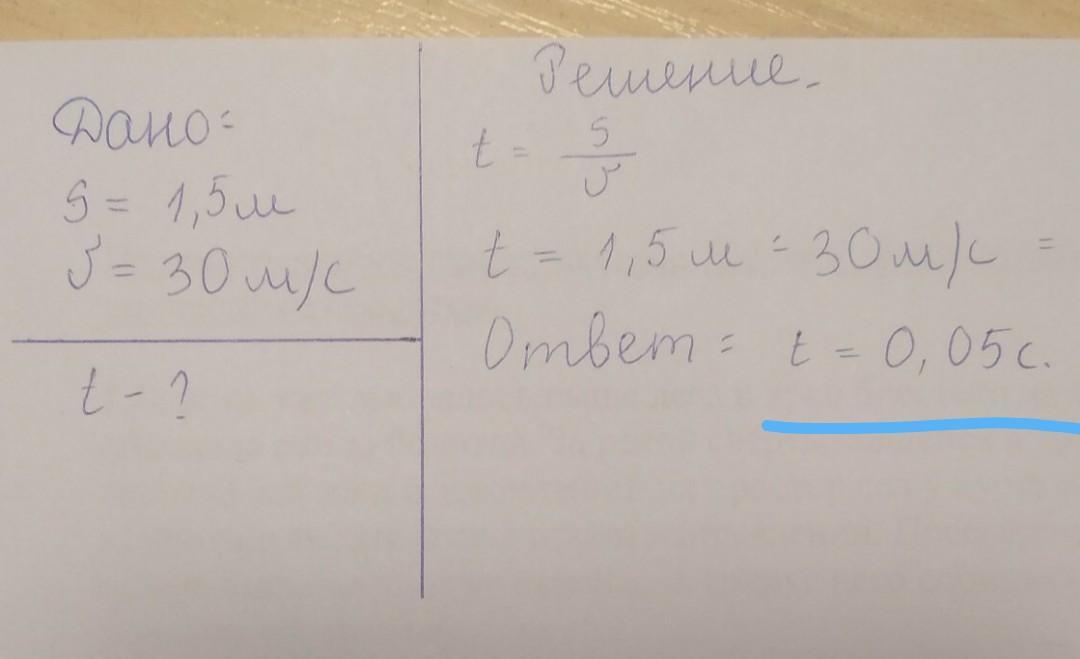 Дано:
S = 1,5м
υ = 30 м/с
t - ?
Решение.
t = S / υ
t = 1,5 м : 30 м/с =
Ответ: t = 0,05 с.